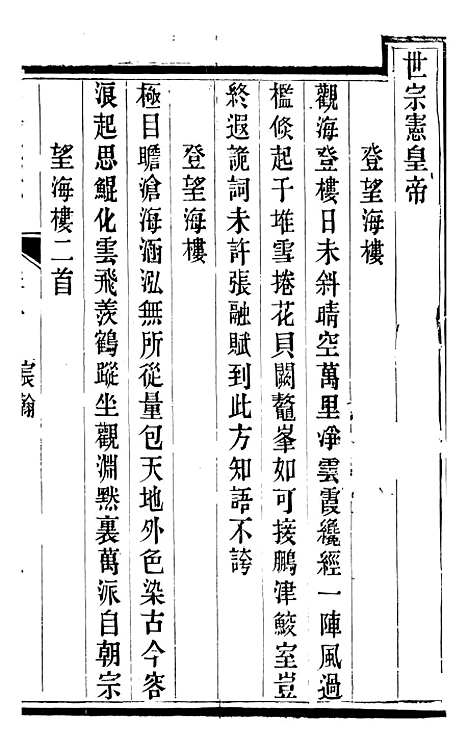 世宗憲皇帝
登望海樓
觀海登樓日未斜晴空萬里凈雲霞纔經一陣風過
檻倐起千堆雪捲花貝闕鼇峯如可接鵬津鮫室豈
終遐詭詞未許張融賦到此方知語不誇
登望海樓
極目瞻滄海涵泓無所從量包天地外色染古今容
浪起思鯤化雲飛羨鶴蹤坐觀淵默裏萬派自朝宗
望海樓二首
宸翰